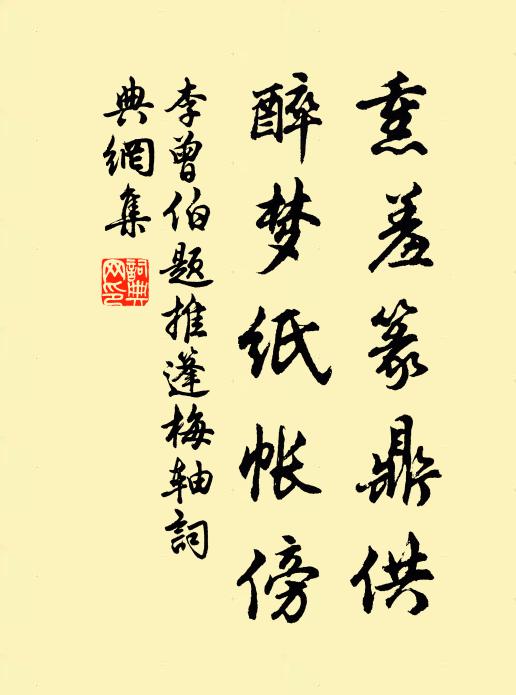 熏羞篆鼎供
醉梦纸帐傍
李曾伯题推蓬梅轴詞
典網集
詞典網印